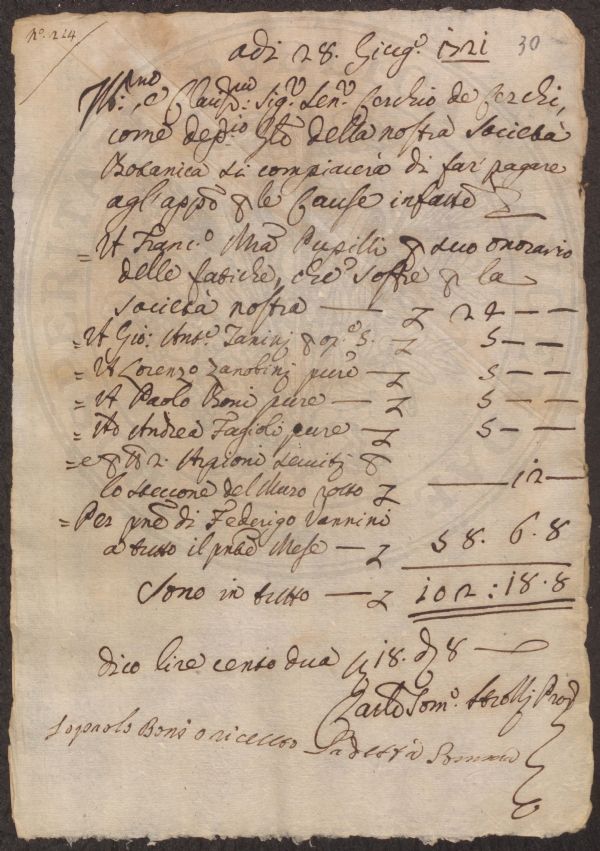 nº. 214
adi 28. Giugº. 1721
30
Ill:mo, e Clariss:mo: Sigr: Senr: Cerchio de Cerchi,
come depio della nostra Società
Botanica si compiacerà di far' pagare
agl'appi & le Cause infatte
= A Franco. Mra Pupilli & suo onorario
delle fatiche, che soffre & la
Società nostra — 24 — —
= A Gio: Anto. Zanini & 5 — —
= A Lorenzo Zanobini pure — 5 — —
= A Paolo Boni pure — 5 — —
= Ad Andrea Fagioli pure — 5 — —
= e & Nº 2. serviti &
lo del Muro rotto — 12 —
= Per pne di Federigo Vannini
a tutto il pnte Mese — 58. 6. 8
Sono in tutto — 102: 18. 8
dico lire cento dua 18. 8 —
Carlo Tomo. Strozzi Prov
Io paolo Boni o riceuto la detta Somma